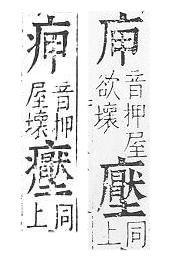 庘
音押屋
欲壞
同
上
音押
屋壞
同
上